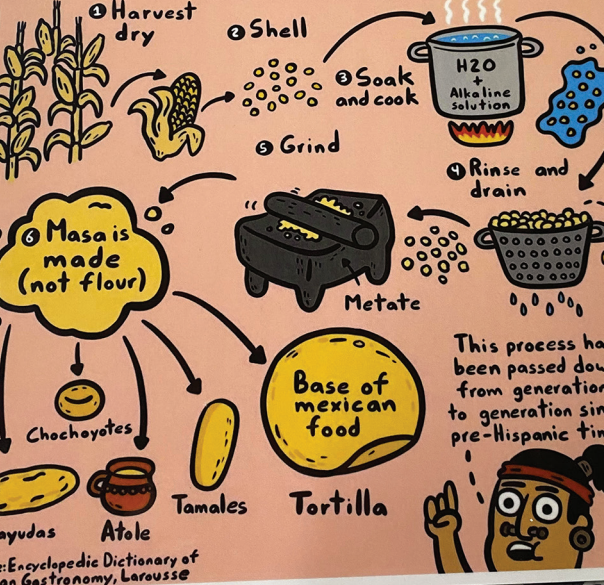 1 Harvest
dry
2 Shell
3 Soak
and cook
H2O
+
Alkaline
solution
4 Rinse and
drain
5 Grind
Metate
6 Masa is
made
(not flour)
Chochoyotes
Atole
Tamales
Base of
mexican
food
Tortilla
This process
been passed
from
to generation
pre-Hispanic
Encyclopedic Dictionary of
Gastronomy, Larousse